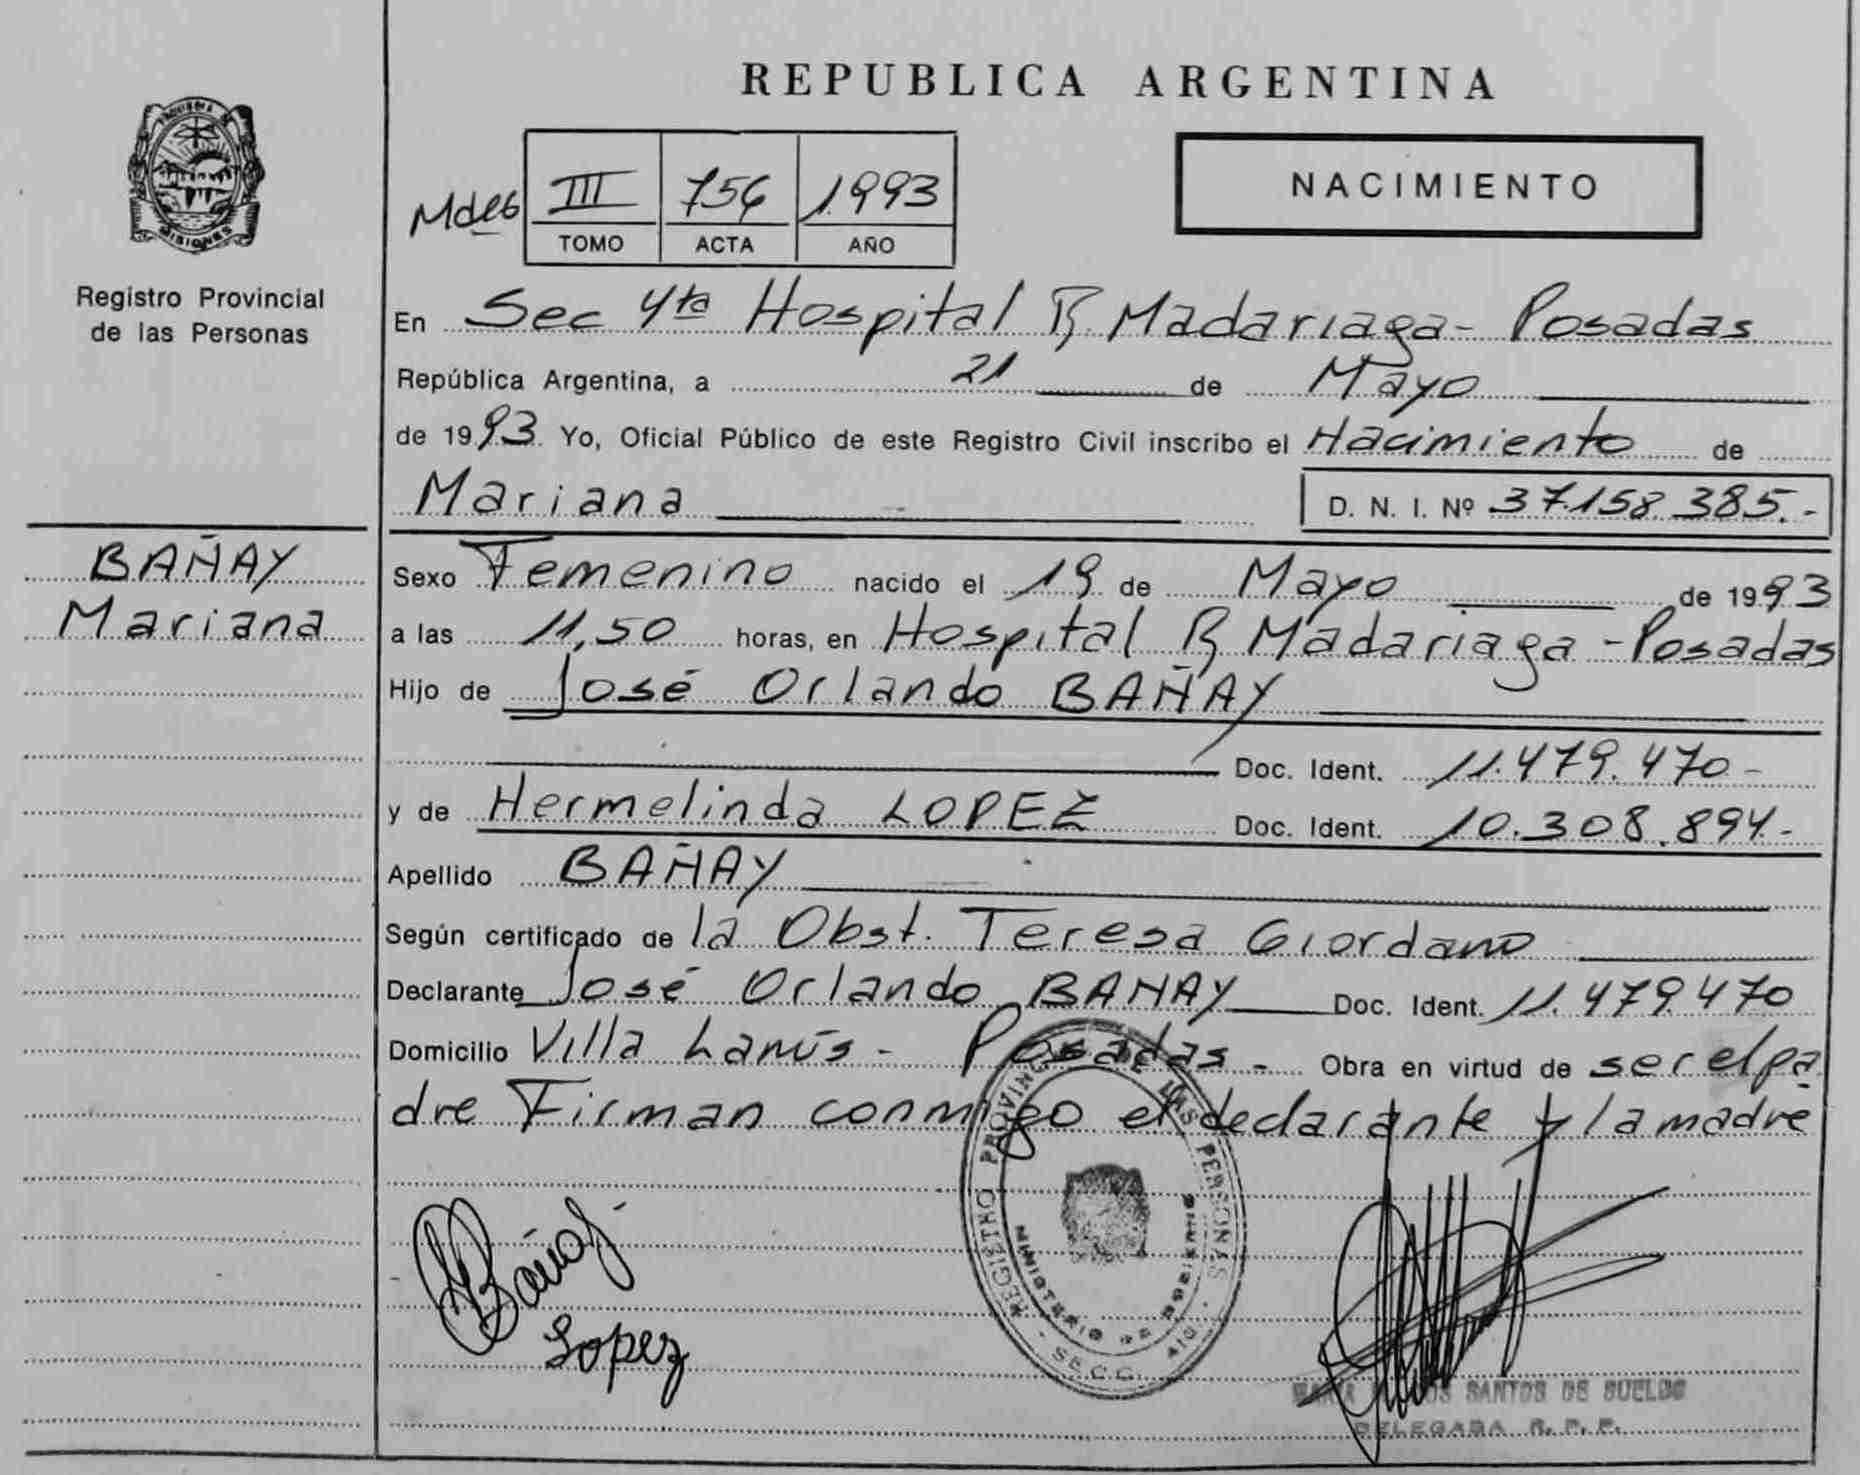 REPUBLICA ARGENTINA
MISIONES
Registro Provincial
de las Personas
III 756 1993
TOMO ACTA AÑO
NACIMIENTO
En Sec 4ta Hospital R. Madariaga - Posadas
República Argentina, a 21 de Mayo
de 1993 Yo, Oficial Público de este Registro Civil inscribo el Nacimiento de
Mariana D. N. I. Nº 37.158.385.-
BAÑAY
Mariana
Sexo Femenino nacido el 19 de Mayo de 1993
a las 11,50 horas, en Hospital R Madariaga - Posadas
Hijo de José Orlando BAÑAY
Doc. Ident. 11.479.470-
y de Hermelinda LOPEZ Doc. Ident. 10.308.894-
Apellido BAÑAY
Según certificado de la Obst. Teresa Giordano
Declarante José Orlando BAÑAY Doc. Ident. 11.479.470
Domicilio Villa Lanús - Posadas - Obra en virtud de ser el pa
dre Firman conmigo el declarante y la madre
Bañay
Lopez
REGISTRO PROVINCIAL DE LAS PERSONAS
MINISTERIO DE GOBIERNO
SECC. 4ta
SANTOS DE
DELEGADA R. P. P.